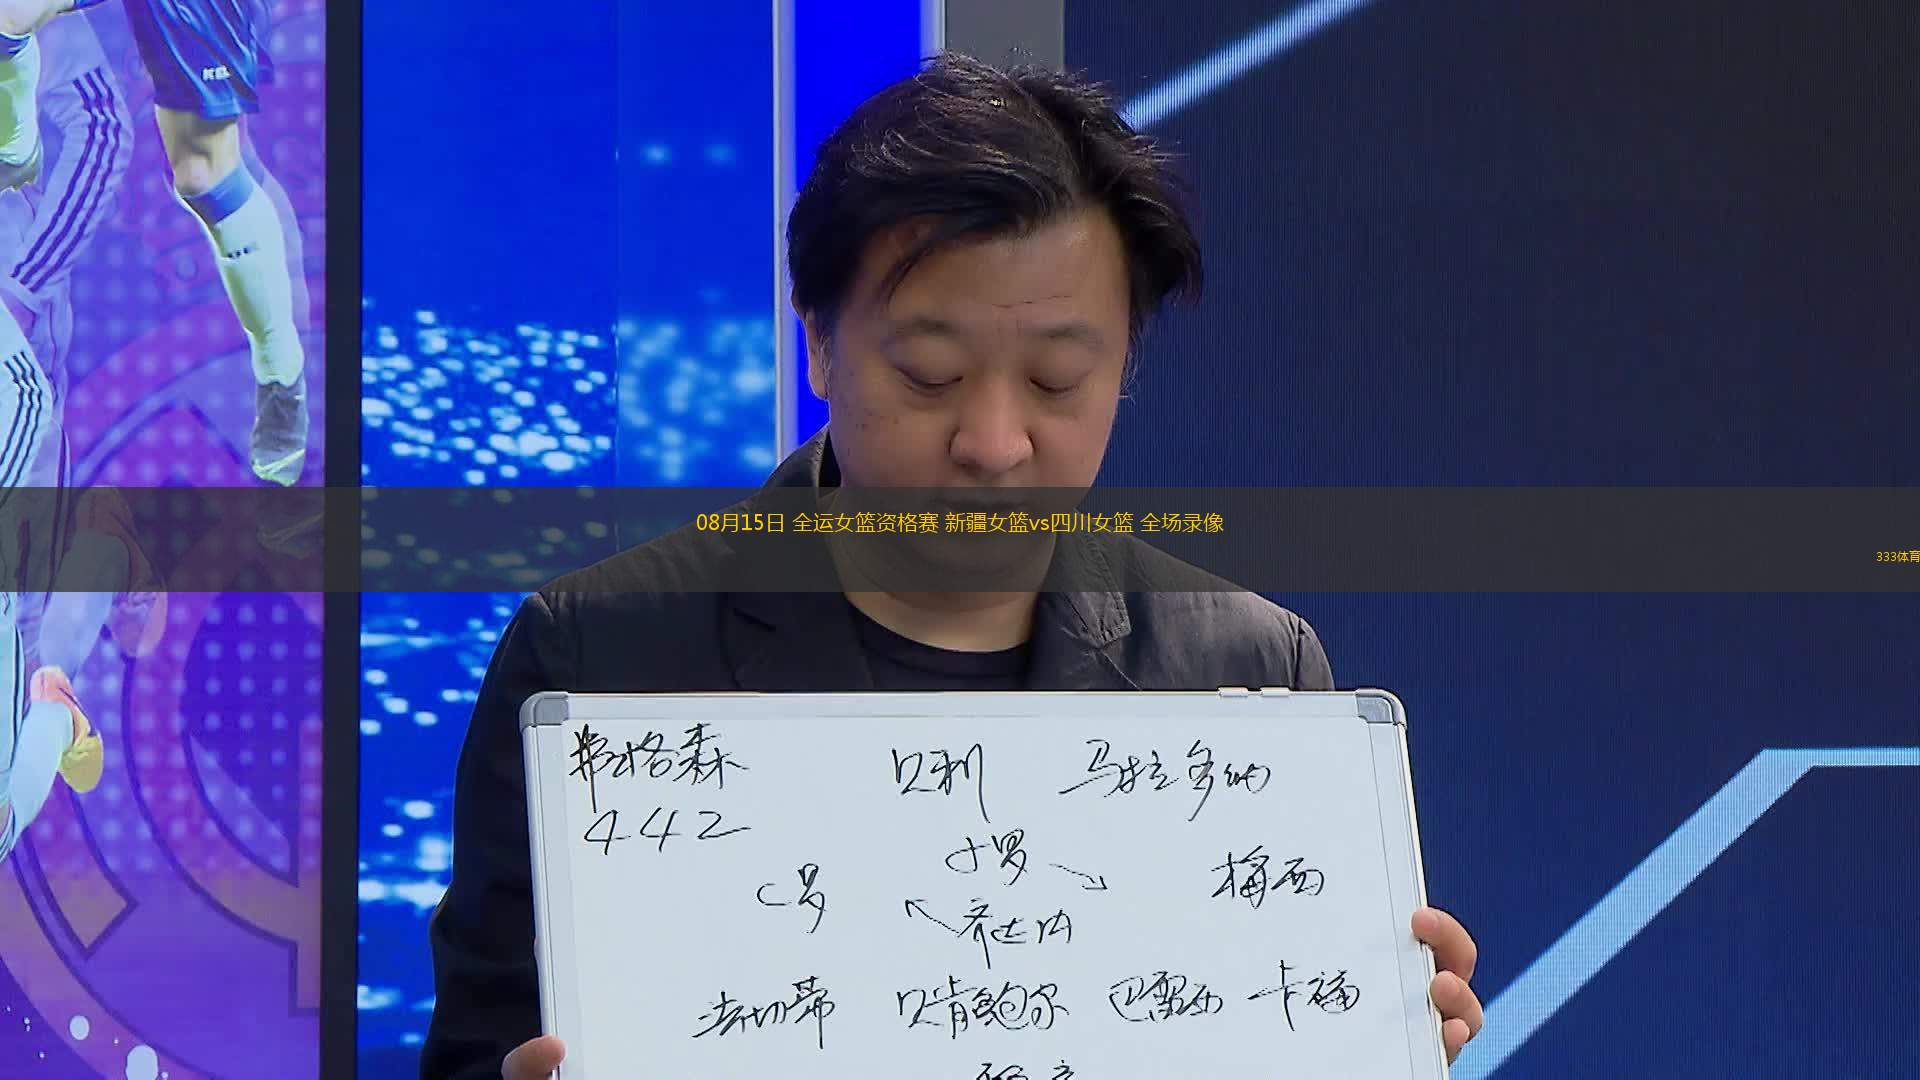 08月15日 全运女篮资格赛 新疆女篮vs四川女篮 全场录像
333体育
弗格森 贝利 马拉多纳
442
小罗
C罗 梅西
齐达内
法切蒂 贝肯鲍尔 巴雷西 卡福